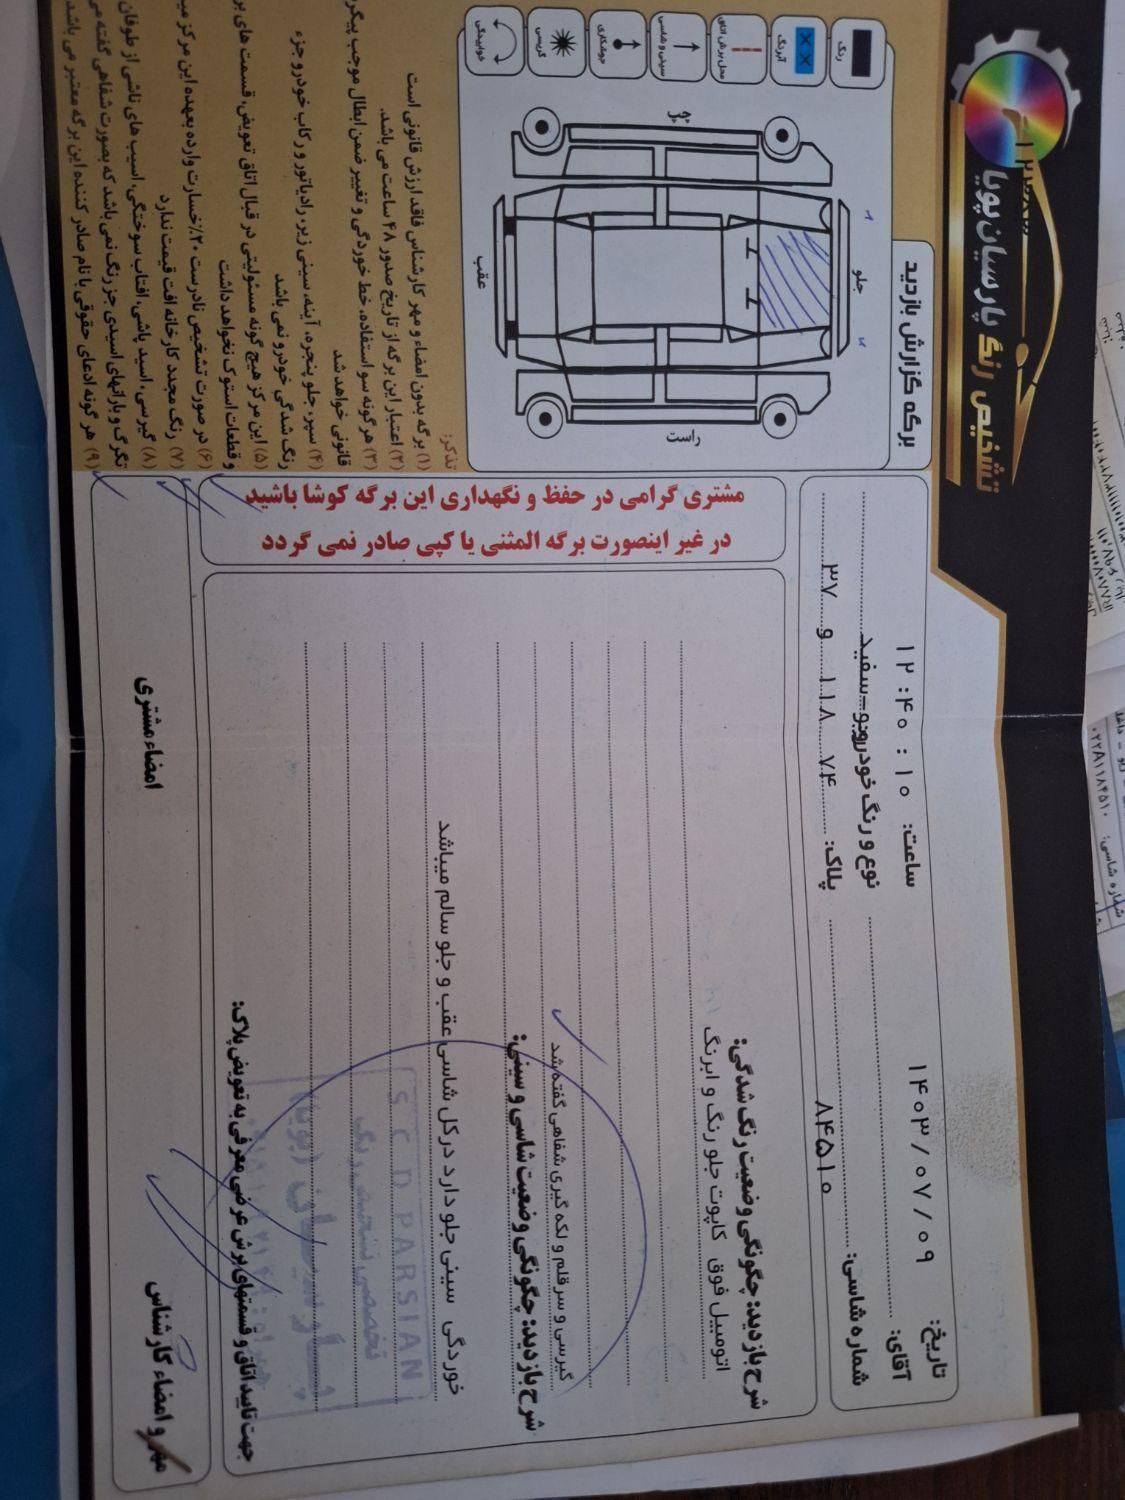 تشخیص رنگ پارسیان پویا
تاریخ: ۱۴۰۳/۰۷/۰۹
ساعت: ۱۲:۴۰:۱۰
آقای:
نوع و رنگ خودرو
سفید
شماره شاسی: ۸۴۵۱۰
پلاک: ۷۴ ۱۱۸ و ۳۷
برگه گزارش بازدید
رنگ
آبرنگ
محل برش اتاق
سینی و شاسی
جوشکاری
گریسی
خوابیدگی
چپ
جلو
عقب
راست
شرح بازدید: چگونگی وضعیت رنگ شدگی:
اتومبیل فوق کاپوت جلو رنگ و ابرنگ
گیرسی و سرقلم و لکه گیری شفاهی گفته شد
شرح بازدید: چگونگی وضعیت شاسی و سینی:
خوردگی سینی جلو دارد درکل شاسی عقب و جلو سالم میباشد
S C D PARSIAN
تخصصی تشخیص رنگ
پارسیان (پویا)
جهت تایید اتاق و قسمتهای برش عرضی معرفی به تعویض پلاک:
مشتری گرامی در حفظ و نگهداری این برگه کوشا باشید
در غیر اینصورت برگه المثنی یا کپی صادر نمی گردد
تذکر:
۱) برگه بدون امضاء و مهر کارشناس فاقد ارزش قانونی است
۲) اعتبار این برگه از تاریخ صدور ۴۸ ساعت می باشد.
۳) هر گونه سو استفاده، خط خوردگی و تغییر ضمن ابطال موجب پیگرد
قانونی خواهد شد
۴) سپر، جلو پنجره، آینه، سینی زیر، رادیاتور و رکاب خودرو جزء
رنگ شدگی خودرو نمی باشد
۵) این مرکز هیچ گونه مسئولیتی در قبال اتاق تعویض، قسمت های
و قطعات استوک نخواهد داشت
۶) در صورت تشخیص نادرست ۲۰٪ خسارت وارده بعهده این مرکز
۷) رنگ مجدد کارخانه افت قیمت ندارد
۸) گیرسی، اسید پاشی، افتاب سوختگی، اسیب های ناشی از طوفان
تگرگ و بارانهای اسیدی جز رنگ نمی باشد که بصورت شفاهی گفته
۹) هر گونه ادعای حقوقی با نام صادر کننده این برگه معتبر می باشد
مهر و امضاء کارشناس
امضاء مشتری
شماره شاسی: